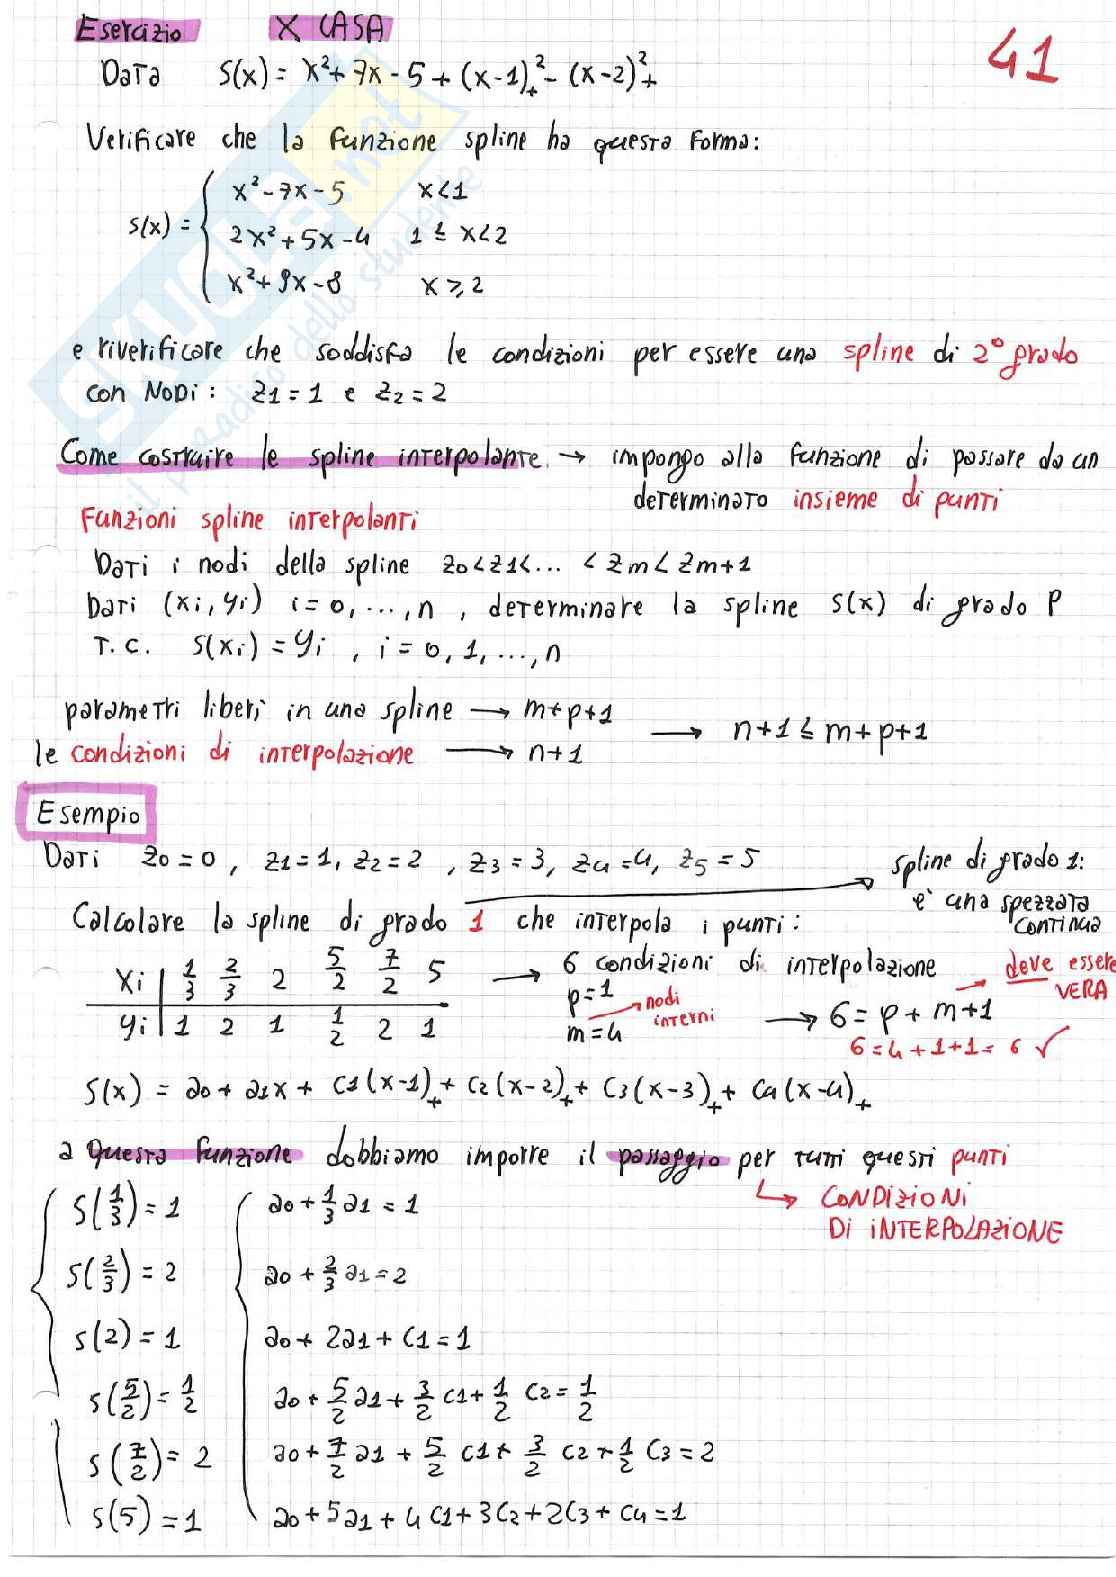 Esercizio X CASA
41
Data S(x) = x²+7x-5+(x-1)²₊-(x-2)²₊
Verificare che la funzione spline ha questa forma:
s(x) = { x²-7x-5 x<1
2x²+5x-4 1≤x<2
x²+9x-8 x≥2
e riverificare che soddisfa le condizioni per essere una spline di 2° grado
con NODi: z1=1 e z2=2
Come costruire le spline interpolante. → impongo alla funzione di passare da un
determinato insieme di punti
Funzioni spline interpolanti
Dati i nodi della spline z0<z1<... <zm<zm+1
Dati (xi, yi) i=0,...,n , determinare la spline s(x) di grado P
T.C. S(xi)=yi , i=0,1,...,n
parametri liberi in una spline → m+p+1
→ n+1 ≤ m+p+1
le condizioni di interpolazione → n+1
Esempio
Dati z0=0, z1=1, z2=2, z3=3, z4=4, z5=5
spline di grado 1:
e' una spezzata
continua
Calcolare la spline di grado 1 che interpola i punti:
xi | 1/3 2/3 2 5/2 7/2 5
yi | 1 2 1 1/2 2 1
→ 6 condizioni di interpolazione
p=1
m=4 → nodi interni
→ 6=p+m+1 → deve essere VERA
6=4+1+1=6 ✓
S(x) = a0+a1x+c1(x-1)₊+c2(x-2)₊+c3(x-3)₊+c4(x-4)₊
a questa funzione dobbiamo imporre il passaggio per tutti questi punti
↳ CONDIZIONI
DI INTERPOLAZIONE
S(1/3)=1 a0+1/3a1=1
S(2/3)=2 a0+2/3a1=2
s(2)=1 a0+2a1+c1=1
s(5/2)=1/2 a0+5/2a1+3/2c1+1/2c2=1/2
s(7/2)=2 a0+7/2a1+5/2c1+3/2c2+1/2c3=2
s(5)=1 a0+5a1+4c1+3c2+2c3+c4=1
SKUOLA.net
il paradiso dello studente